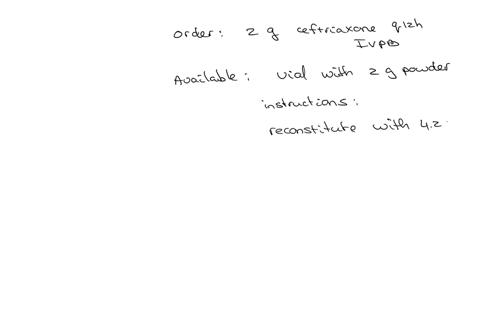 order: 2 g ceftriaxone q12h
IVPB
Available: vial with 2 g powder
instructions:
reconstitute with 4.2